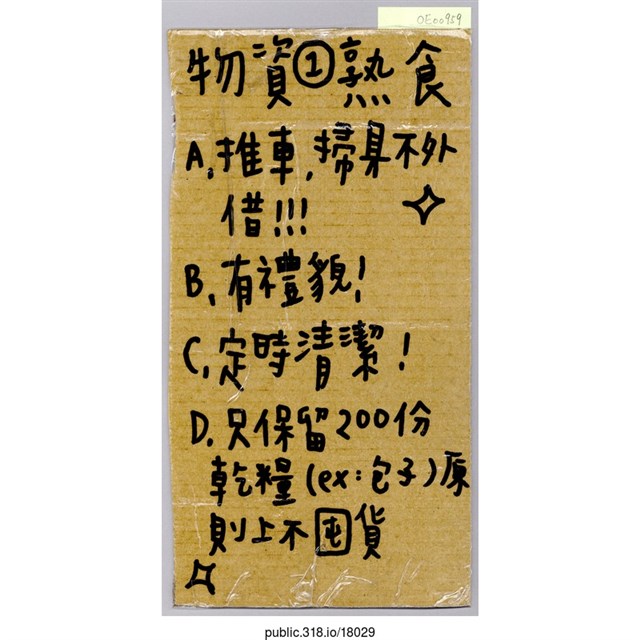 OE00959
物資①熟食
A. 推車,掃具不外
借!!!
B. 有禮貌!
C. 定時清潔!
D. 只保留200份
乾糧(ex:包子)原
則上不囤貨
public.318.io/18029